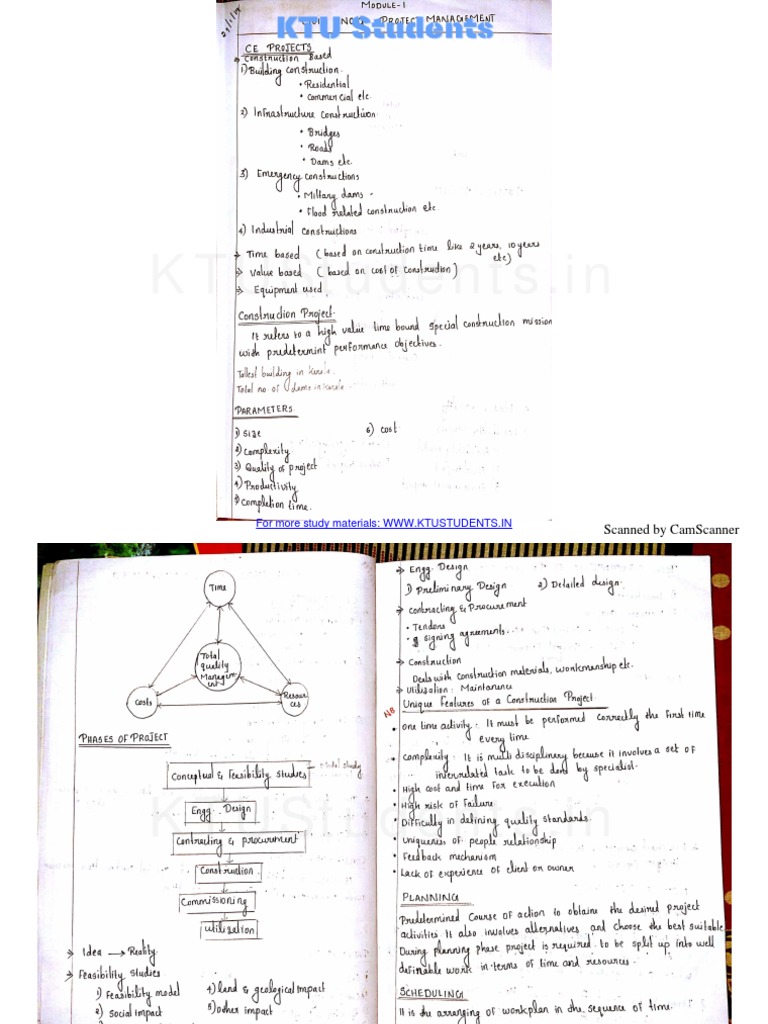 29/1/19
MODULE-1
CIVIL ENGG PROJECT MANAGEMENT
KTU Students
CE PROJECTS
→ Construction Based
1) Building construction.
• Residential
• commercial etc.
2) Infrastructure construction
• Bridges
• Roads
• Dams etc.
3) Emergency constructions
• Military dams
• Flood related construction etc
4) Industrial constructions
→ Time based (based on construction time like 2 years, 10 years etc)
→ Value based (based on cost of construction)
→ Equipment used
KTUStudents.in
Construction Project
It refers to a high value time bound special construction mission
with predetermint performance objectives.
Tallest building in kerala.
Total no. of dams in kerala
PARAMETERS
1) Size
6) cost
2) Complexity
3) Quality of project
4) Productivity
5) Completion time.
For more study materials: WWW.KTUSTUDENTS.IN
Scanned by CamScanner
Time
Total
quality
Manage-
ment
Costs
Resour
ces
PHASES OF PROJECT
Conceptual & feasibility studies
Engg. Design
Contracting & procurement
Construction
Commissioning
Utilisation
KTUStudents.in
→ Idea → Reality
→ Feasibility studies
1) feasibility model
4) land & geological impact
2) Social impact
5) other impact
→ Engg. Design
1) Preliminary Design 2) Detailed design.
→ Contracting & Procurement
• Tenders
• signing agreements.
→ Construction
Deals with construction materials, workmanship etc.
→ Utilisation: Maintanence
NB
Unique Features of a Construction Project
• One time activity :- It must be performed correctly the first time
every time
• Complexity. It is multi disciplinary because it involves a set of
interrelated task to be done by specialist.
• High cost and time for execution
• High risk of failure
• Difficulty in defining quality standards.
• Uniqueness of people relationship
• Feedback mechanism
• Lack of experience of client or owner
PLANNING
Predetermined Course of action to obtaine the desired project
activities. It also involves alternatives and choose the best suitable
During planning phase project is required to be split up into well
definable work in terms of time and resources.
SCHEDULING
It is the arranging of workplan in the sequence of time.